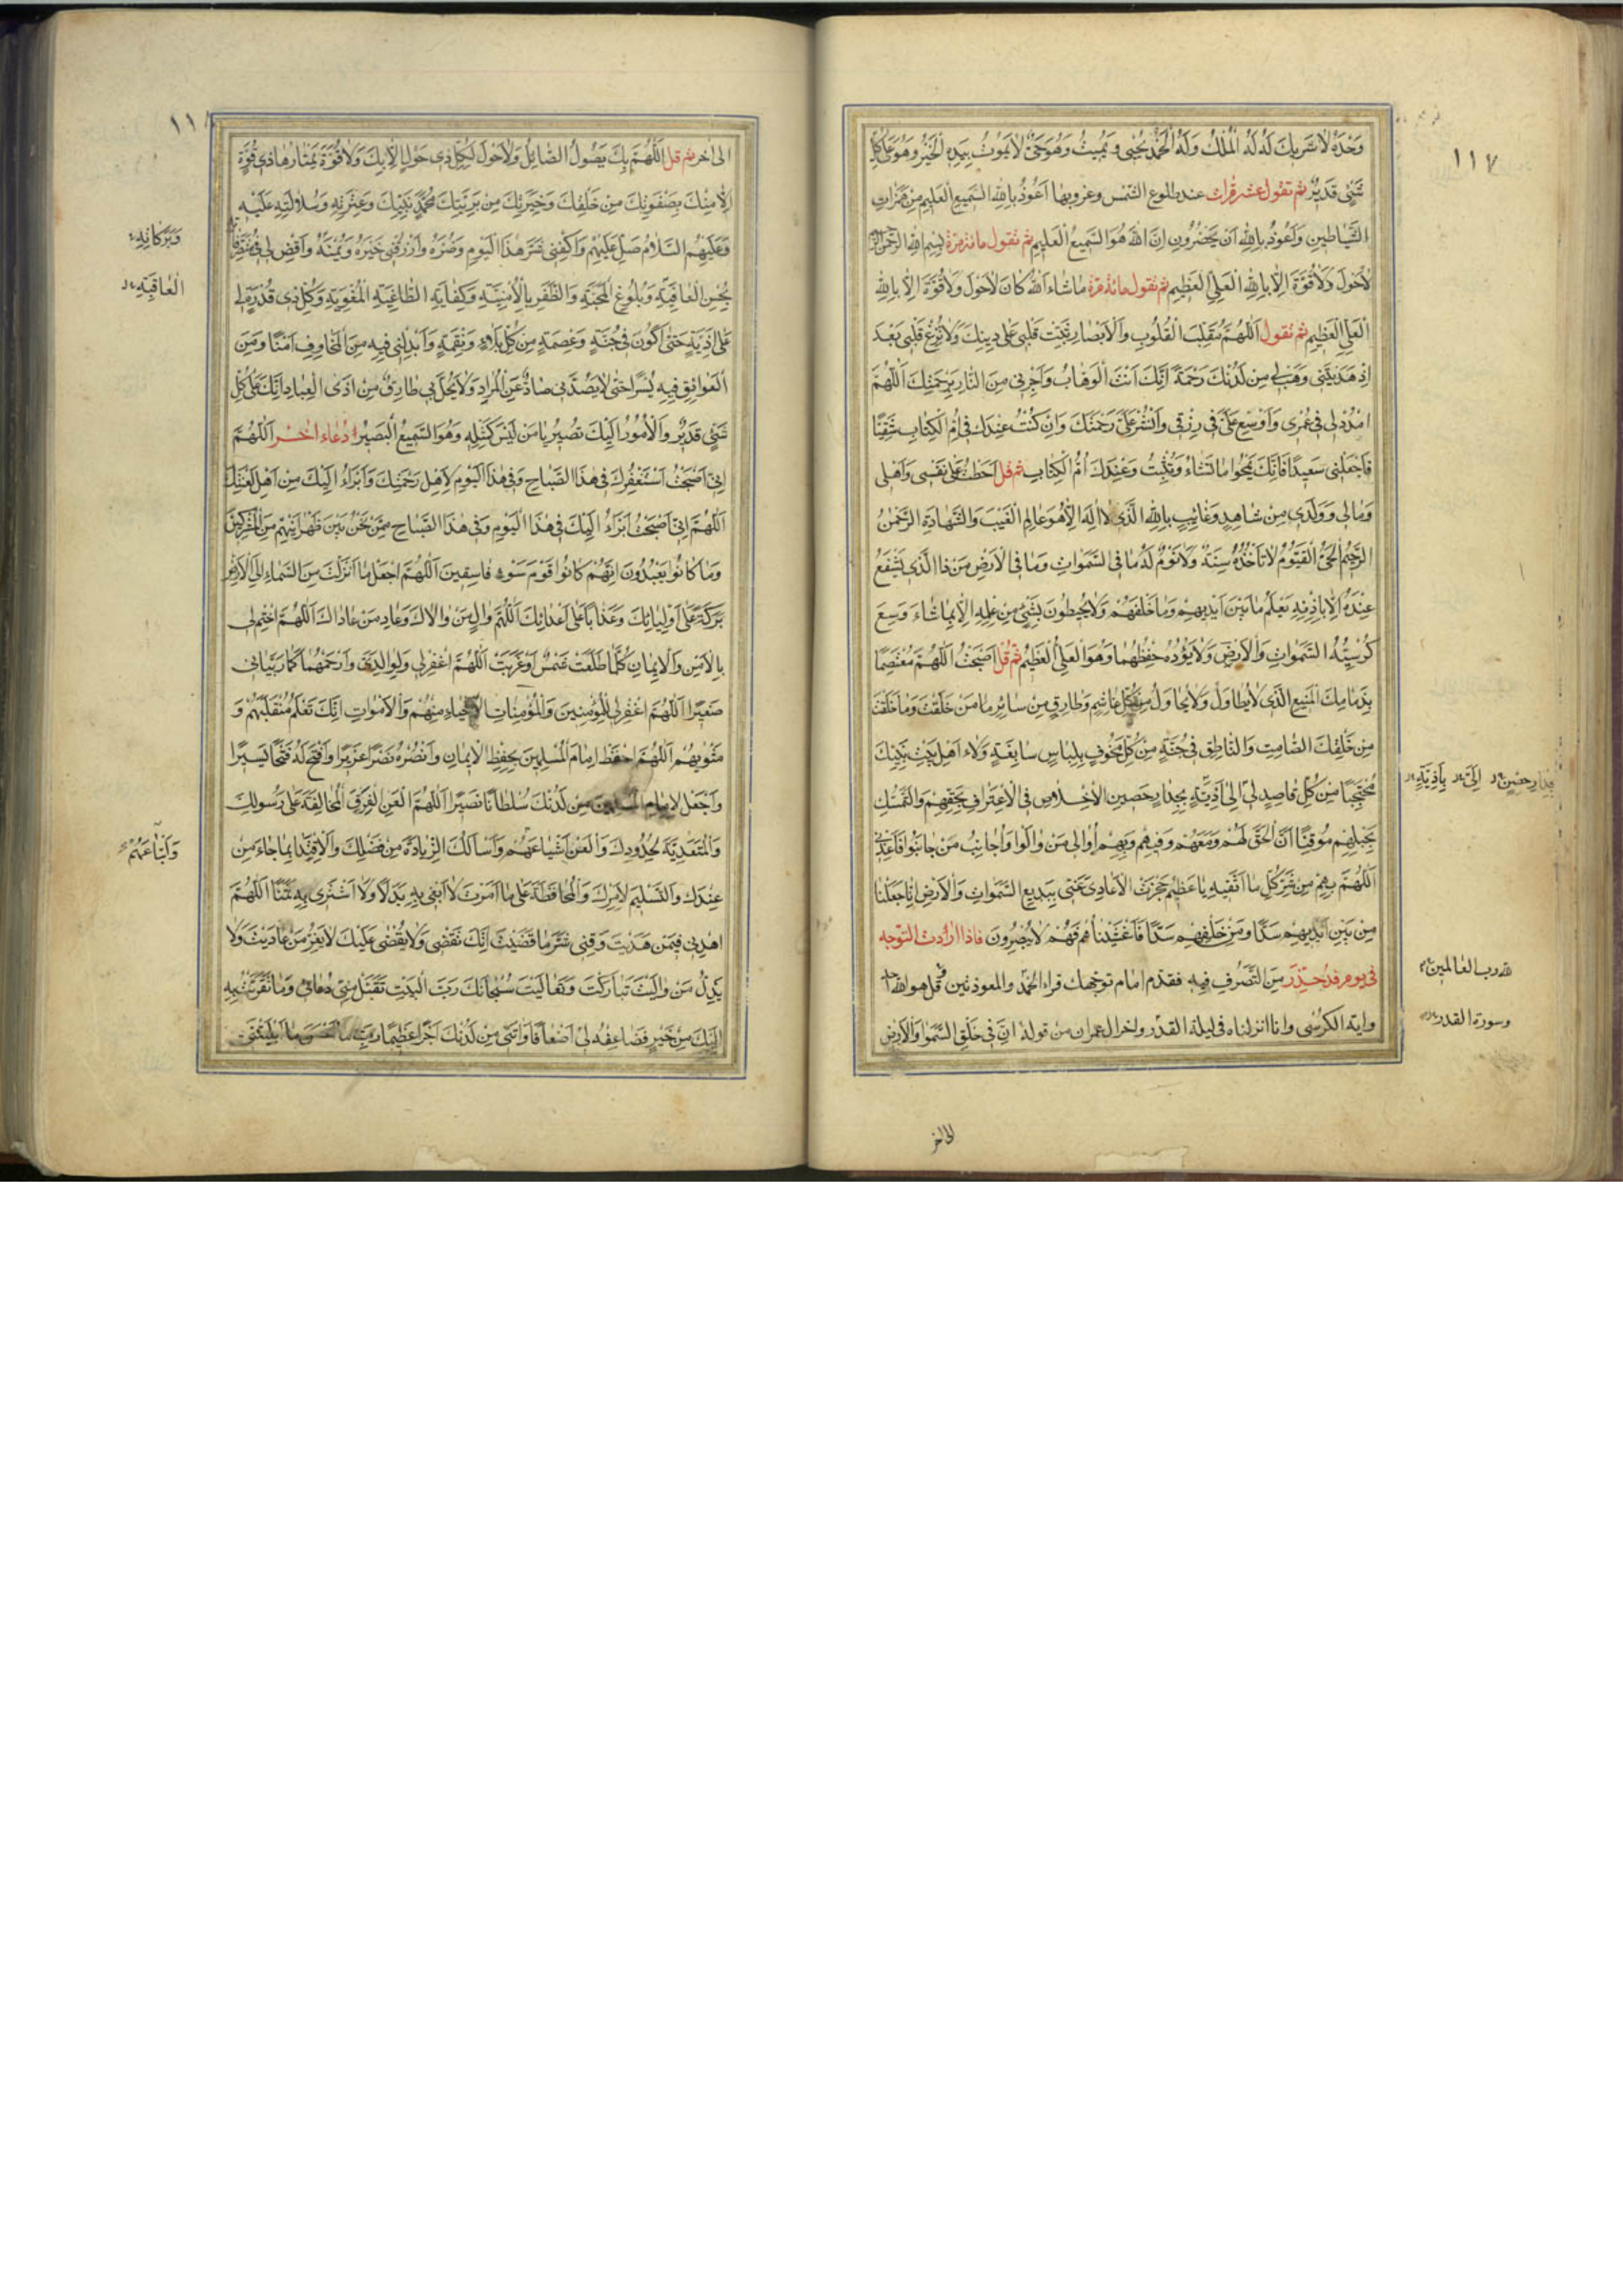 ١١٧
وَحْدَهُ لَا شَرِيكَ لَهُ لَهُ الْمُلْكُ وَلَهُ الْحَمْدُ يُحْيِي وَيُمِيتُ وَهُوَ حَيٌّ لَا يَمُوتُ بِيَدِهِ الْخَيْرُ وَهُوَ عَلَى كُلِّ
شَيْءٍ قَدِيرٌ ثم تقول عشر مرات عند طلوع الشمس وغروبها أَعُوذُ بِاللَّهِ السَّمِيعِ الْعَلِيمِ مِنْ هَمَزَاتِ
الشَّيَاطِينِ وَأَعُوذُ بِاللَّهِ أَنْ يَحْضُرُونِ إِنَّ اللَّهَ هُوَ السَّمِيعُ الْعَلِيمُ ثم تقول مائة مرة بِسْمِ اللَّهِ الرَّحْمَنِ الرَّحِيمِ
لَا حَوْلَ وَلَا قُوَّةَ إِلَّا بِاللَّهِ الْعَلِيِّ الْعَظِيمِ ثم تقول مائة مرة مَا شَاءَ اللَّهُ كَانَ لَا حَوْلَ وَلَا قُوَّةَ إِلَّا بِاللَّهِ
الْعَلِيِّ الْعَظِيمِ ثم تقول اللَّهُمَّ مُقَلِّبَ الْقُلُوبِ وَالْأَبْصَارِ ثَبِّتْ قَلْبِي عَلَى دِينِكَ وَلَا تُزِغْ قَلْبِي بَعْدَ
إِذْ هَدَيْتَنِي وَهَبْ لِي مِنْ لَدُنْكَ رَحْمَةً إِنَّكَ أَنْتَ الْوَهَّابُ وَأَجِرْنِي مِنَ النَّارِ بِرَحْمَتِكَ اللَّهُمَّ
امْدُدْ لِي فِي عُمْرِي وَأَوْسِعْ عَلَيَّ فِي رِزْقِي وَانْشُرْ عَلَيَّ رَحْمَتَكَ وَإِنْ كُنْتُ عِنْدَكَ فِي أُمِّ الْكِتَابِ شَقِيًّا
فَاجْعَلْنِي سَعِيدًا فَإِنَّكَ تَمْحُوا مَا تَشَاءُ وَتُثْبِتُ وَعِنْدَكَ أُمُّ الْكِتَابِ ثم قل أَحَطْتُ عَلَى نَفْسِي وَأَهْلِي
وَمَالِي وَوَلَدِي مِنْ شَاهِدٍ وَغَائِبٍ بِاللَّهِ الَّذِي لَا إِلَهَ إِلَّا هُوَ عَالِمُ الْغَيْبِ وَالشَّهَادَةِ الرَّحْمَنُ
الرَّحِيمُ الْحَيُّ الْقَيُّومُ لَا تَأْخُذُهُ سِنَةٌ وَلَا نَوْمٌ لَهُ مَا فِي السَّمَوَاتِ وَمَا فِي الْأَرْضِ مَنْ ذَا الَّذِي يَشْفَعُ
عِنْدَهُ إِلَّا بِإِذْنِهِ يَعْلَمُ مَا بَيْنَ أَيْدِيهِمْ وَمَا خَلْفَهُمْ وَلَا يُحِيطُونَ بِشَيْءٍ مِنْ عِلْمِهِ إِلَّا بِمَا شَاءَ وَسِعَ
كُرْسِيُّهُ السَّمَوَاتِ وَالْأَرْضَ وَلَا يَؤُدُهُ حِفْظُهُمَا وَهُوَ الْعَلِيُّ الْعَظِيمُ ثم قل أَصْبَحْتُ اللَّهُمَّ مُعْتَصِمًا
بِذِمَامِكَ الْمَنِيعِ الَّذِي لَا يُطَاوَلُ وَلَا يُحَاوَلُ مِنْ كُلِّ غَاشِمٍ وَطَارِقٍ مِنْ سَائِرِ مَا مَنْ خَلَقْتَ وَمَا خَلَقْتَ
مِنْ خَلْقِكَ الصَّامِتِ وَالنَّاطِقِ فِي جُنَّةٍ مِنْ كُلِّ مَخُوفٍ بِلِبَاسٍ سَابِغَةٍ وَلَاءِ أَهْلِ بَيْتِ نَبِيِّكَ
مُحْتَجِبًا مِنْ كُلِّ قَاصِدٍ لِي إِلَى أَذِيَّةٍ بِجِدَارٍ حَصِينِ الْإِخْلَاصِ فِي الْاِعْتِرَافِ بِحَقِّهِمْ وَالتَّمَسُّكِ
بِحَبْلِهِمْ مُوقِنًا أَنَّ الْحَقَّ لَهُمْ وَمَعَهُمْ وَفِيهِمْ وَبِهِمْ أُوَالِي مَنْ وَالَوْا وَأُجَانِبُ مَنْ جَانَبُوا فَأَعِذْنِي
اللَّهُمَّ بِهِمْ مِنْ شَرِّ كُلِّ مَا أَتَّقِيهِ يَا عَظِيمُ حَجَزْتُ الْأَعَادِيَ عَنِّي بِبَدِيعِ السَّمَوَاتِ وَالْأَرْضِ إِنَّا جَعَلْنَا
مِنْ بَيْنِ أَيْدِيهِمْ سَدًّا وَمِنْ خَلْفِهِمْ سَدًّا فَأَغْشَيْنَاهُمْ فَهُمْ لَا يُبْصِرُونَ فاذا اردت التوجه
في يوم قد حذر من التصرف فيه فقدم امام توجهك قراءة الحمد والمعوذتين وقل هو الله احد
واية الكرسي وانا انزلناه في ليلة القدر واخر ال عمران من قوله ان في خلق السموات والأرض
بجدار حصين إِلَيَّ بِأَذِيَّةٍ
لله رب العالمين
وسورة القدر
الى اخر
١١٨
الى اخر ثم قل اللَّهُمَّ بِكَ يَصُولُ الصَّائِلُ وَلَا حَوْلَ لِكُلِّ ذِي حَوْلٍ إِلَّا بِكَ وَلَا قُوَّةَ يَمْتَارُهَا ذِي قُوَّةٍ
إِلَّا مِنْكَ بِصَفْوَتِكَ مِنْ خَلْقِكَ وَخِيَرَتِكَ مِنْ بَرِيَّتِكَ مُحَمَّدٍ نَبِيِّكَ وَعِتْرَتِهِ وَسُلَالَتِهِ عَلَيْهِ
وَعَلَيْهِمُ السَّلَامُ صَلِّ عَلَيْهِمْ وَاكْفِنِي شَرَّ هَذَا الْيَوْمِ وَضُرَّهُ وَارْزُقْنِي خَيْرَهُ وَيُمْنَهُ وَاقْضِ لِي فِي مُتَصَرَّفَاتِي
بِحُسْنِ الْعَافِيَةِ وَبُلُوغِ الْمَحَبَّةِ وَالظَّفَرِ بِالْأُمْنِيَّةِ وَكِفَايَةِ الطَّاغِيَةِ الْمُغْوِيَةِ وَكُلِّ ذِي قُدْرَةٍ لِي
عَلَى أَذِيَّةٍ حَتَّى أَكُونَ فِي جُنَّةٍ وَعِصْمَةٍ مِنْ كُلِّ بَلَاءٍ وَنِقْمَةٍ وَأَبْدِلْنِي فِيهِ مِنَ الْمَخَاوِفِ أَمْنًا وَمِنَ
الْعَوَائِقِ فِيهِ يُسْرًا حَتَّى لَا يَصُدَّنِي صَادٌّ عَنِ الْمُرَادِ وَلَا يَحُلَّ بِي طَارِقٌ مِنْ أَذَى الْعِبَادِ إِنَّكَ عَلَى كُلِّ
شَيْءٍ قَدِيرٌ وَالْأُمُورُ إِلَيْكَ تَصِيرُ يَا مَنْ لَيْسَ كَمِثْلِهِ وَهُوَ السَّمِيعُ الْبَصِيرُ دعاء اخر اللَّهُمَّ
إِنِّي أَصْبَحْتُ أَسْتَغْفِرُكَ فِي هَذَا الصَّبَاحِ وَفِي هَذَا الْيَوْمِ لِأَهْلِ رَحْمَتِكَ وَأَبْرَأُ إِلَيْكَ مِنْ أَهْلِ لَعْنَتِكَ
اللَّهُمَّ إِنِّي أَصْبَحْتُ أَبْرَأُ إِلَيْكَ فِي هَذَا الْيَوْمِ وَفِي هَذَا الصَّبَاحِ مِمَّنْ نَحْنُ بَيْنَ ظَهْرَانَيْهِمْ مِنَ الْمُشْرِكِينَ
وَمَا كَانُوا يَعْبُدُونَ إِنَّهُمْ كَانُوا قَوْمَ سَوْءٍ فَاسِقِينَ اللَّهُمَّ اجْعَلْ مَا أَنْزَلْتَ مِنَ السَّمَاءِ إِلَى الْأَرْضِ
بَرَكَةً عَلَى أَوْلِيَائِكَ وَعَذَابًا عَلَى أَعْدَائِكَ اللَّهُمَّ وَالِ مَنْ وَالَاكَ وَعَادِ مَنْ عَادَاكَ اللَّهُمَّ اخْتِمْ لِي
بِالْأَمْنِ وَالْإِيمَانِ كُلَّمَا طَلَعَتْ شَمْسٌ أَوْ غَرَبَتْ اللَّهُمَّ اغْفِرْ لِي وَلِوَالِدَيَّ وَارْحَمْهُمَا كَمَا رَبَّيَانِي
صَغِيرًا اللَّهُمَّ اغْفِرْ لِلْمُؤْمِنِينَ وَالْمُؤْمِنَاتِ الْأَحْيَاءِ مِنْهُمْ وَالْأَمْوَاتِ إِنَّكَ تَعْلَمُ مُنْقَلَبَهُمْ وَ
مَثْوَيهُمْ اللَّهُمَّ احْفَظْ إِمَامَ الْمُسْلِمِينَ بِحِفْظِ الْإِيمَانِ وَانْصُرْهُ نَصْرًا عَزِيزًا وَافْتَحْ لَهُ فَتْحًا يَسِيرًا
وَاجْعَلْ لِإِمَامِ الْمُسْلِمِينَ مِنْ لَدُنْكَ سُلْطَانًا نَصِيرًا اللَّهُمَّ الْعَنِ الْفِرَقَ الْمُخَالِفَةَ عَلَى رَسُولِكَ
وَالْمُتَعَدِّيَةَ لِحُدُودِكَ وَالْعَنْ أَشْيَاعَهُمْ وَأَسْأَلُكَ الزِّيَادَةَ مِنْ فَضْلِكَ وَالْاِقْتِدَاءَ بِمَا جَاءَ مِنْ
عِنْدِكَ وَالتَّسْلِيمَ لِأَمْرِكَ وَالْمُحَافَظَةَ عَلَى مَا أَمَرْتَ لَا أَبْغِي بِهِ بَدَلًا وَلَا أَشْتَرِي بِهِ ثَمَنًا اللَّهُمَّ
اهْدِنِي فِيمَنْ هَدَيْتَ وَقِنِي شَرَّ مَا قَضَيْتَ إِنَّكَ تَقْضِي وَلَا يُقْضَى عَلَيْكَ لَا يَعِزُّ مَنْ عَادَيْتَ وَلَا
يَذِلُّ مَنْ وَالَيْتَ تَبَارَكْتَ وَتَعَالَيْتَ سُبْحَانَكَ رَبَّ الْبَيْتِ تَقَبَّلْ مِنِّي دُعَائِي وَمَا تَقَرَّبْتُ بِهِ
إِلَيْكَ مِنْ خَيْرٍ فَضَاعِفْهُ لِي أَضْعَافًا وَآتِنِي مِنْ لَدُنْكَ أَجْرًا عَظِيمًا رَبِّ مَا أَحْسَنَ مَا أَبْلَيْتَنِي
وَبَرَكَاتِهِ
الْعَاقِبَةِ
وَأَتْبَاعَهُمْ